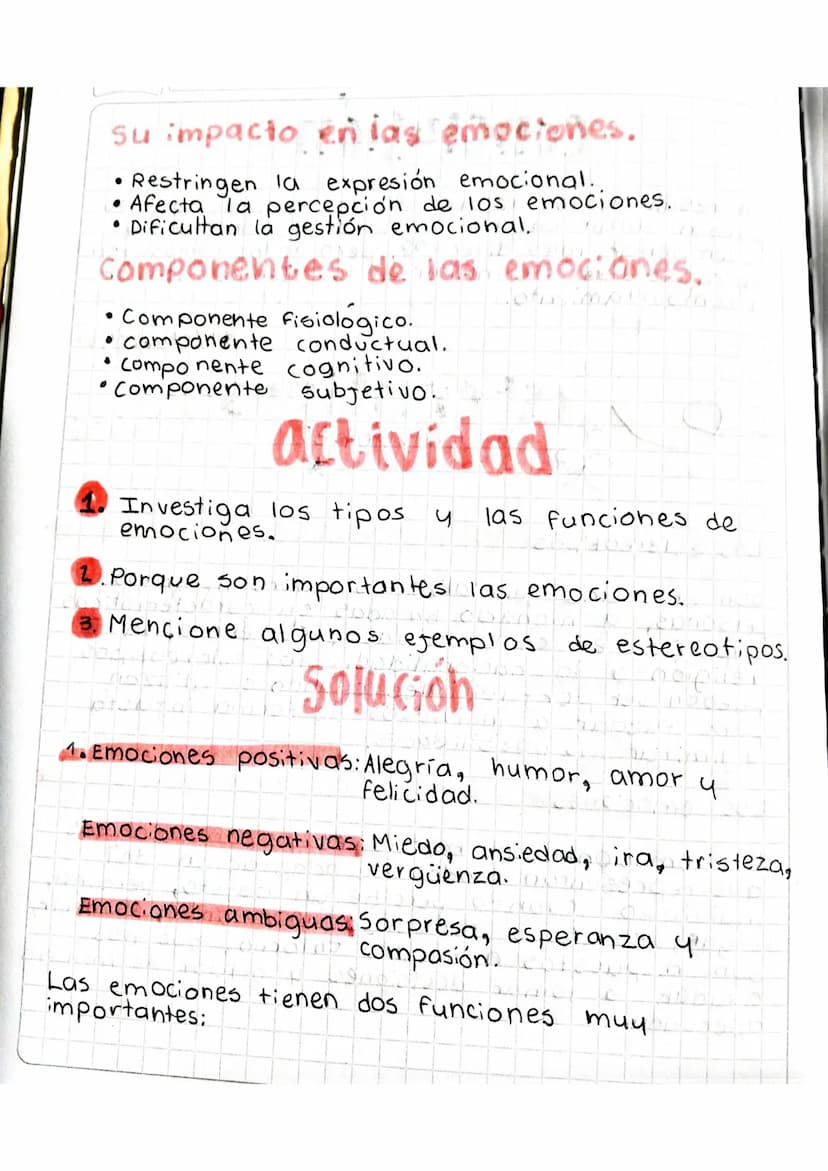 Su impacto en las emociones.
• Restringen la expresión emocional.
• Afecta la percepción de los emociones.
• Dificultan la gestión emocional.
Componentes de las emociones.
• Componente fisiológico.
• componente conductual.
• Componente cognitivo.
• Componente subjetivo.
actividad
1. Investiga los tipos y las funciones de
emociones.
2. Porque son importantes las emociones.
3. Mencione algunos ejemplos de estereotipos.
Solución
1. Emociones positivas: Alegría, humor, amor y
felicidad.
Emociones negativas: Miedo, ansiedad, ira, tristeza,
vergüenza.
Emociones ambiguas: Sorpresa, esperanza y
compasión.
Las emociones tienen dos funciones muy
importantes: